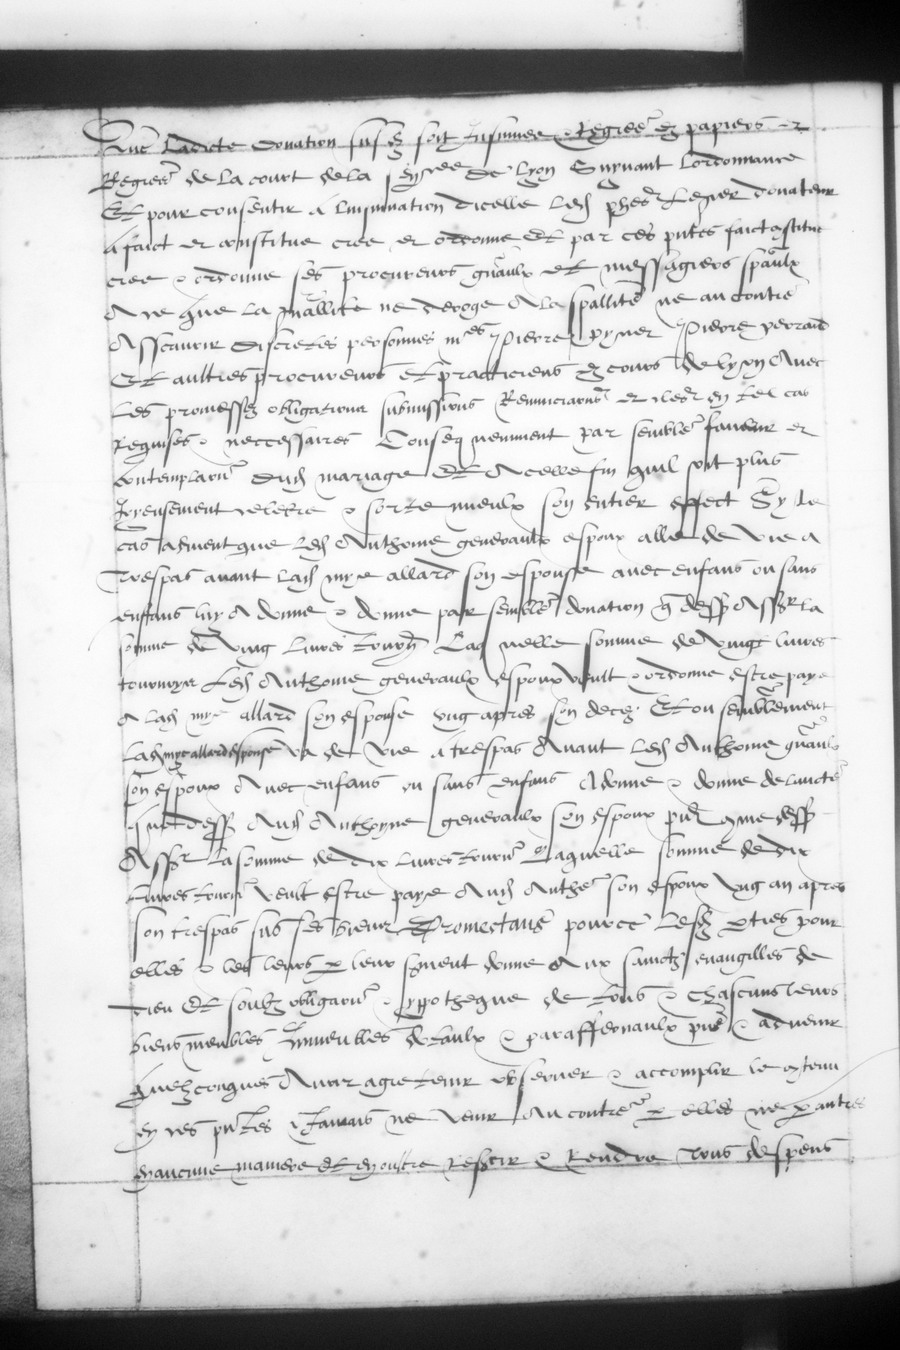 Que ladicte donation susd soit Insinuee & Regree es papiers et
Regrees de la court de la seneee de lyon Suyuant lordonnance
Et pour consentir a linsinuation dicelle led Regier donateur
a faict et constitue cree et ordonne Et par ces pntes faict constitue
cree & ordonne ses procureurs gnaulx et messagiers spaulx
a ce que la gnallite ne deroge a la spallite ne au contre
Assauoir discretes personnes mes pierre pyner pierre perraud
Et aultres procureurs et practiciens es cours de lyon Auec
les promesses obligations submissions Renunciations et en tel cas
requises & neccessaires Consequemment par semble faueur et
contemplation dud mariage Et A celle fin quil soit plus
Ioyeusement celebre & sorte mieulx son entier effect Sy le
cas aduient que led Anthoine generaulx espoux alle de vie a
trespas auant lad mye allard son espouse auec enfans ou sans
enfans luy A donne & donne par semble donation q dess Assr la
somme de vingt liures tourn Laquelle somme de vingt liures
tournoys led Anthoine generaulx espoux veult & ordonne estre paye
a lad mye allard son espouse ung apres son deces Et ou semblement
Lad mye allard espouse va de vie a trespas Auant led Anthoine gnaulx
son espoux Auec enfans ou sans enfans A donne & donne de lauctе
que dess Aud Anthoyne generaulx son espoux pnt come dess
Assr la somme de dix liures tourn Laquelle somme de dix
liures tourn veult estre paye Aud Anthe son espoux ung an apres
son trespas sus ses biens Promectans pource lesd pties pour
elles & les leurs p leur sment donne Aux sainctz euangilles de
dieu Et soubz obligation & ypotheque de tous & chascuns leurs
biens meubles Immeubles dotaulx & paraffernaulx pns & aduenir
quelzconques Auoir agre tenir obseruer & accomplir le contenu
en ces pntes & Iamais ne venir Au contre p elles ne p autres
en aucune maniere Et en oultre & Rendre tous despens